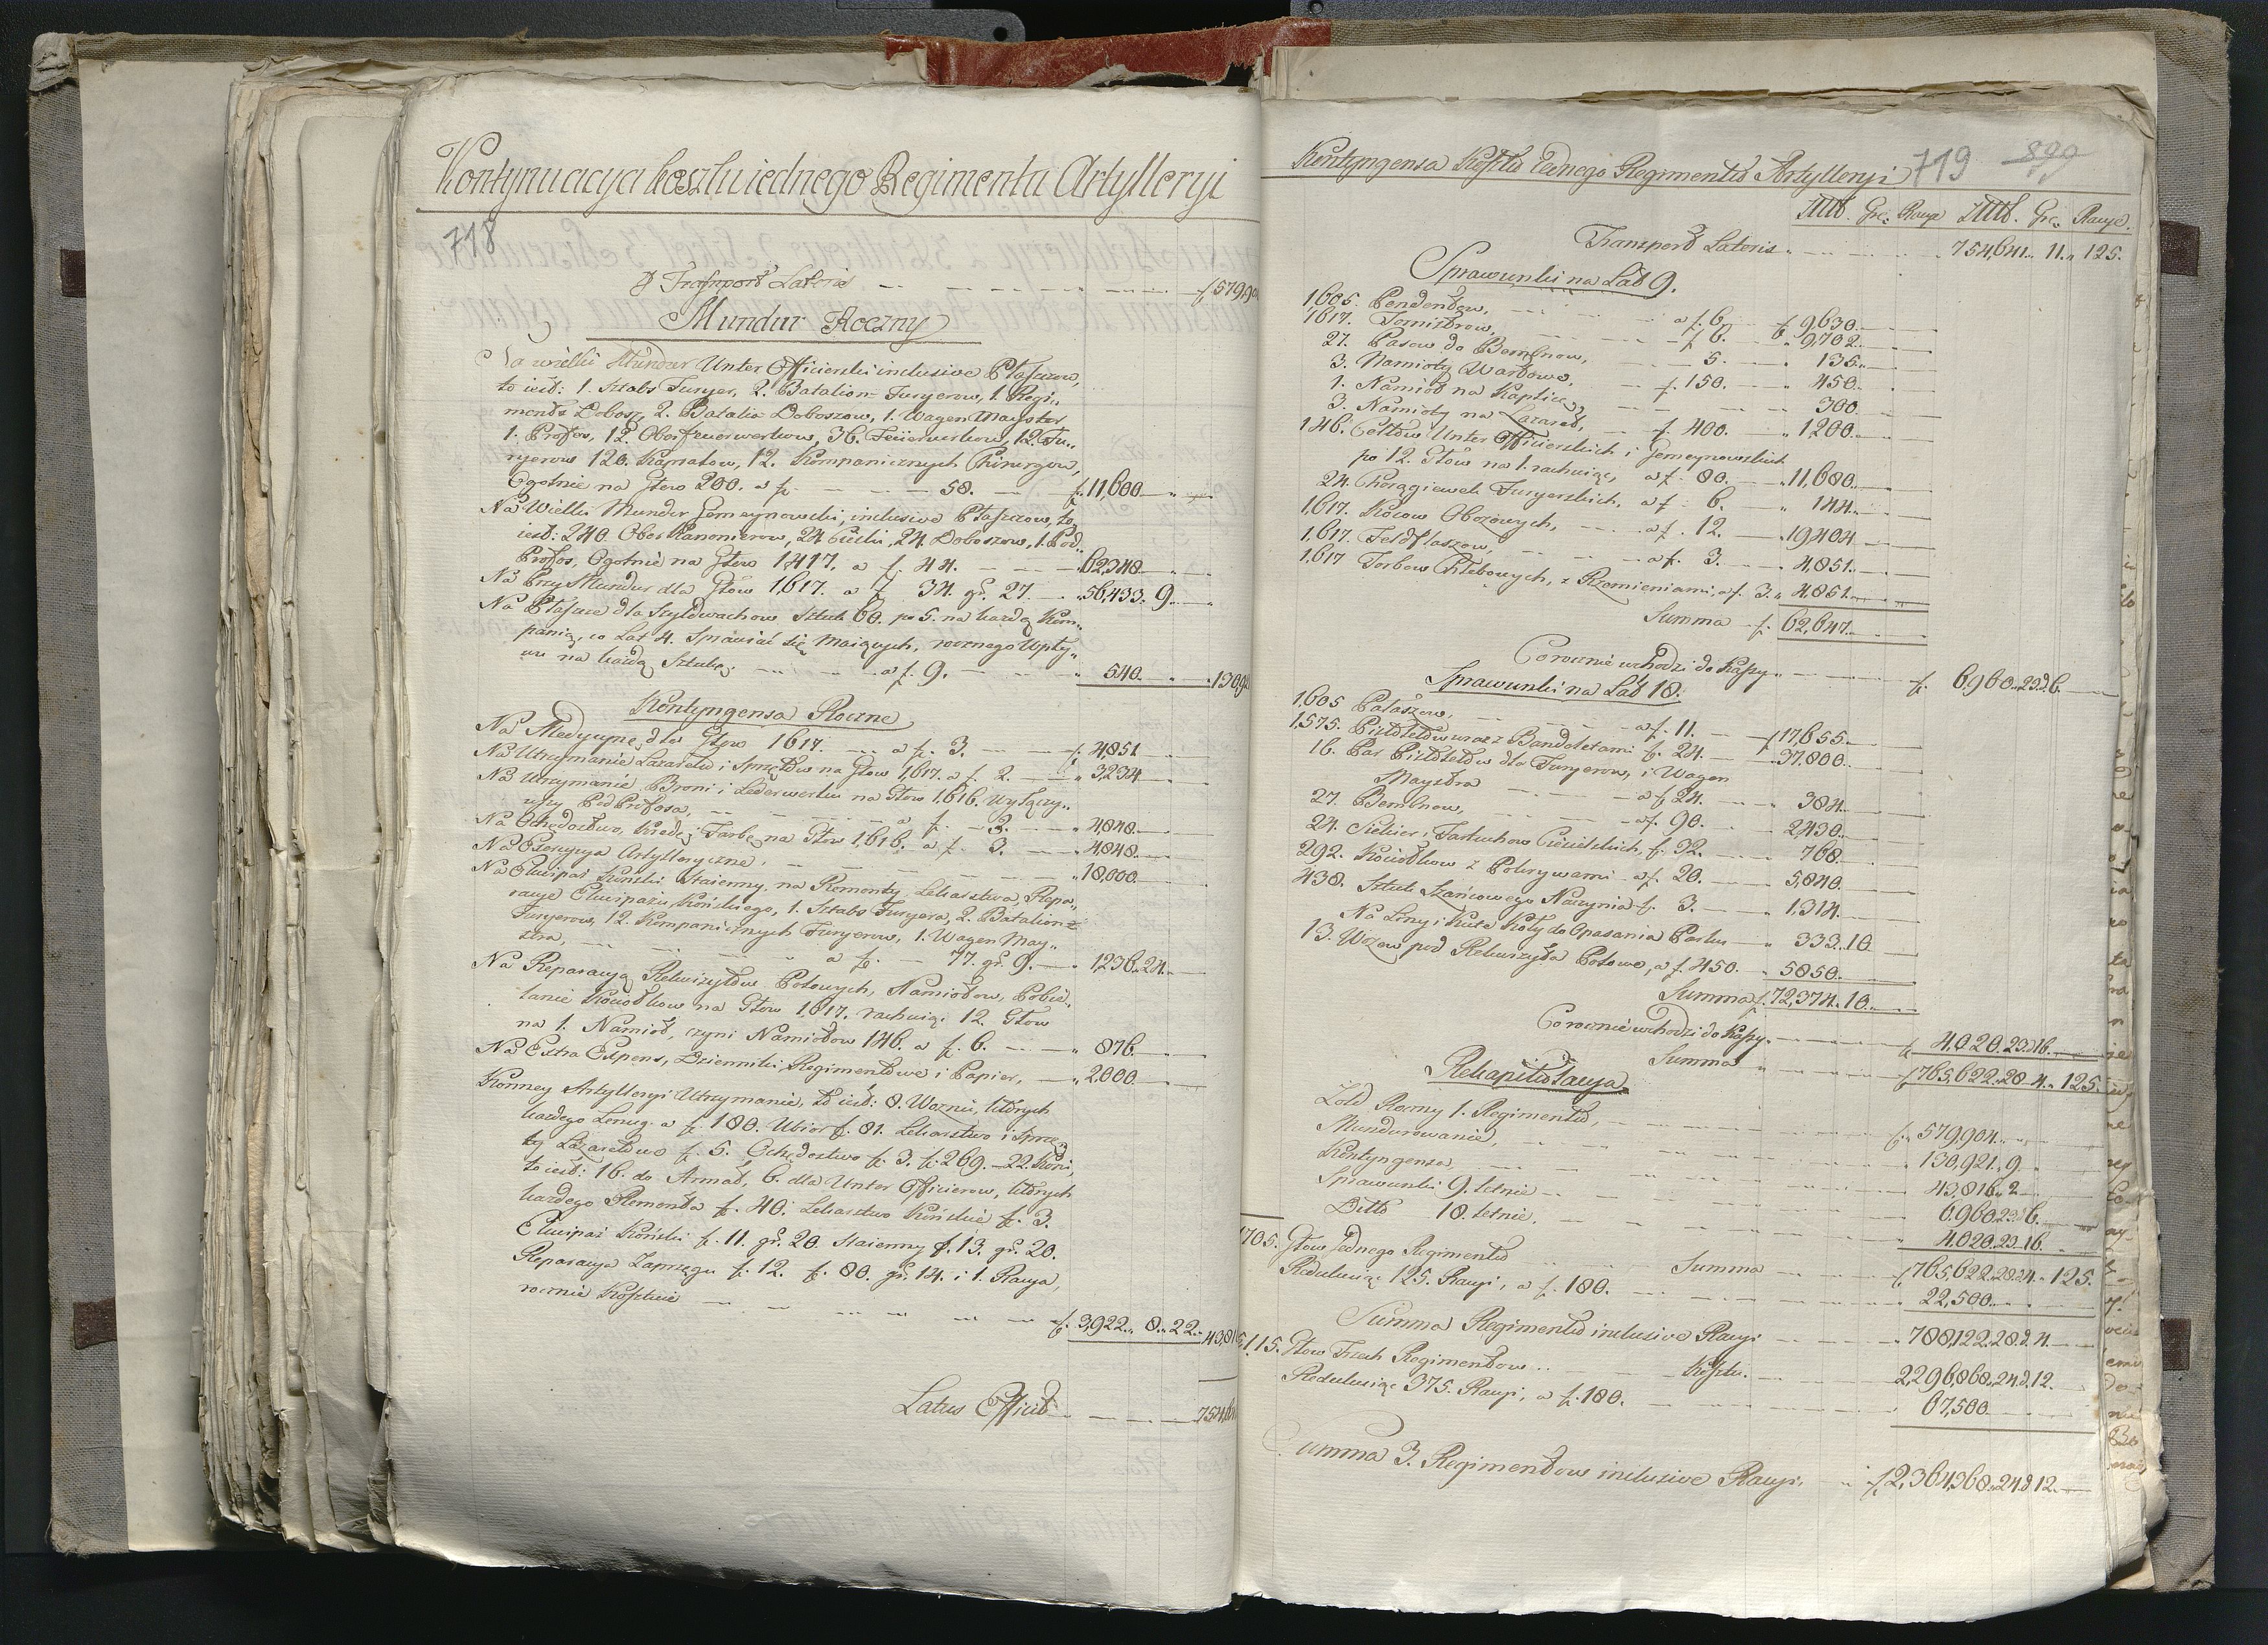 Kontynuacya kosztu iednego Regimentu Artylleryi
718
Transport Lateris — — — — f 57990
Mundur Roczny
Na wielki Mundur Unter Officierski inclusive Płaszczow,
to iest: 1. Sztabs Furyer, 2. Batalion Furyerow, 1. Regi„
ments Dobosz, 2. Batalion Doboszow, 1. Wagen Mayster
1. Profos, 12. Oberfeuerwerkow, 36. Feüerwerkow, 12. Fu„
ryerow 120. Kapralow, 12. Kompanicznych Chirurgow,
Ogolnie na Głow 200. a f. — — — 58. — f. 11,600
Na Wielki Mundur Gemeynowski, inclusive Płaszczow, to
iest: 240. Ober Kanonierow, 24 Cieśli, 24. Doboszow, 1. Pod„
Profos, Ogolnie na Głow 1417. a f. 44. — — — 62,348
Na Przy Mundur dla Głow 1,617. a f 34. gr. 27. — „ 56,433. 9.
Na Płaszcze dla Szyldwachow Sztuk 60. po 5. na każdą Kom„
panią, co Lat 4. Sprawiać się maiących, rocznego Wpły„
wu na każdą Sztukę. — — — a f. 9. — — „ 540. — 1309
Kontyngensa Roczne
Na Medycynę dla Głow 1617. — a f. 3. — — f. 4851
Na Utrzymanie Lazaretu i Sprzętow na Głow 1,617. a f. 2. — „ 3234
Na Utrzymanie Broni i Lederwerku na Głow 1,616. wyłączy„
wszy PodProfosa, — — — a f. — 3. — „ 4848.
Na Ochędostwo, Kredę i Farbę na Głow 1,616. a f. 3. — „ 4848.
Na Exercycya Artylleryczne. — — — — — „ 18,000.
Na Ekwipaż Koński Staienny, na Remonty, Lekarstwa, Repa„
racye Ekwipażu Końskiego, 1. Sztabs Furyera, 2. Batalion
Furyerow, 12. Kompanicznych Furyerow, 1. Wagen May„
stra, — — — a f. — 77. gr. 9. — „ 1,236. 24.
Na Reparacyą Rekwizytow Polowych, Namiotow, Pobie„
lanie Kociołkow na Głow 1,617. rachuiąc 12. Głow
na 1. Namiot, czyni Namiotow 146. a f. 6. — — „ 876.
Na Extra Expens, Dzienniki Regimentowe i Papier, — „ 2,000.
Konney Artylleryi Utrzymanie, to iest: 8. Woźnic, których
każdego Lenug. a f. 180. Ubior f. 81. Lekarstwo i Sprzę
ty Lazaretowe f. 5. Ochędostwo f. 3. f. 269. — 22. Koni,
to iest: 16. do Armat, 6. dla Unter Officierow, których
każdego Remonta f. 40. Lekarstwo Końskie f. 3.
Ekwipaż Koński f. 11. gr. 20. Staienny f. 13. gr. 20.
Reparacya Zaprzęgu f. 12. f. 80. gr. 14. i 1. Racya,
rocznie Kosztuie — — — — — f. 3,922. 8. 22. 43,81
Latus Efficit — — — 754,64
Kontyngensa Kosztu Jednego Regimentu Artylleryi 719 899
Złłt. Gr. Racye Złłt. Gr. Racye.
Transport Lateris — — — 754,641. 11. 125.
Sprawunki na Lat 9.
1,605. Pendentow, — — — a f. 6. f. 9,630.
1617. Tornistrow, — — — f. 6. „ 9,702.
27. Pasow do Bembnow, — — 5. „ 135.
3. Namioty Wartowe, — — f. 150. „ 450.
1. Namiot na Kaplicę, — — — 300.
3. Namioty na Lazaret, — f. 400. „ 1,200.
146. Celtow Unter Officierskich i Gemeynowskich
po 12. Głow na 1. rachuiąc, a f. 80. — „ 11,680.
24. Chorągiewek Furyerskich, a f. 6. „ 144.
1,617. Kocow Obozowych, — a f. 12. — „ 19404
1,617. Feldflaszow, — — — a f. 3. — „ 4,851.
1,617 Torbow Chlebowych, z Rzemieniami, a f. 3. „ 4,851.
Summa f. 62,647.
Corocznie wchodzi do Kassy — — — f. 6,960. 23. 6.
Sprawunki na Lat 18.
1,605 Pałaszow, — — — a f. 11. — f 17,655.
1,575. Pistoletow wraz z Bandoletami f. 24. — „ 37,800.
16. Par Pistoletow dla Furyerow, i Wagen
Maystra — — — a f 24. — „ 384.
27. Bembnow, — — — a f. 90. — 2,430.
24. Siekier i Fartuchow Ciesielskich, f. 32. — 768.
292. Kociołkow z Pokrywami a f. 20. — 5,840.
438. Sztuk Szańcowego Naczynia f. 3. — 1,314.
Na Liny i Kute Koły do Opasania Parku — „ 333. 10
13. Wozow pod Rekwizyta Polowe, a f. 450. „ 5850.
Summa f. 72,374. 10.
Corocznie wchodzi do Kassy — — f. 4,020. 23. 16.
Summa — — f 765,622. 28. 4. 125.
Rekapitulacya
Żołd Roczny 1. Regimentu, — — — f. 579,904.
Mundurowanie, — — — 130,921. 9.
Kontyngensa, — — — 43,816. 2
Sprawunki 9. letnie — — — 6,960. 23. 6.
Ditto 18. letnie. — — — 4020. 23. 16.
1705. Głow Jednego Regimentu Summa — — f 765,622. 28. 4. 125.
Redukuiąc 125. Racyi, a f. 180. — — — 22,500.
Summa Regimentu inclusive Racyi — — „ 788,122. 28. 4.
5,115. Głow Trzech Regimentow — — Kosztu. — — 2,296,868. 24. 12.
Redukuiąc 375. Racyi, a f. 180. — — — 67,500.
Summa 3. Regimentow inclusive Racyi. — f 2,364,368. 24. 12.